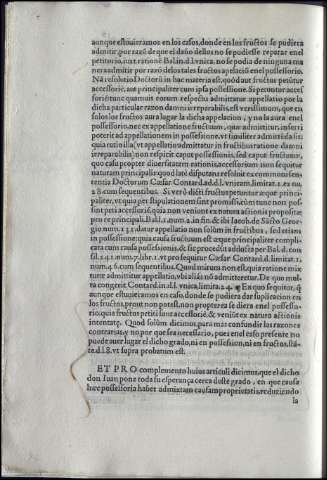 aunque estuuieramos en los casos, donde en los fructos se pudiera
admitir, por razõ de que el daño dellos no se pudiesse reparar en el
petitorio, iuxt. ratione Bal. in d. l. vnica. no se podia de ninguna ma
nera admitir por razõ de los tales fructos apelaciõ en el possessorio.
Nã resolutio Doctorũ in hac materia est, quòd aut fructus petũtur
accessoriè, aut principaliter cum ipsa possessione. Si petuntur acces
soriè tunc quamuis eorum respectu admittatur appellatio por la
dicha particular razon damni irreparabilis, est verissimum, que en
solos los fructos aura lugar la dicha appelacion, y no la aura en el
possessorio, nec ex appellatione fructuum, quæ admittitur, inferri
poterit ad appellationem in possessione, vt similiter admittẽda sit:
quia ratio illa (vt appellatio admittatur in fructibus ratione damni
irreparabilis) non respicit caput possessionis, sed caput fructuum,
quo casu propter diuersitatem rationis, accessorium non sequitur
naturam principalis: quod latè disputans resoluit ex communi sen-
tentia Doctorum Cæsar Contard. ad d. l. vnic. in limit. 1. ex nu.
28. cum sequentibus. Si verò dicti fructus petuntur æquè princi-
paliter, vt quia per stipulationem sunt promissi: cum tunc non pos-
sint peti accessoriè, quia non veniunt ex natura actionis propositæ
pro re principali. Bal. l. 1. num. 2. in fin. & ibi Iacob. de Sãcto Geor-
gio num. 13. datur appellatio non solùm in fructibus, sed etiam
in possessione: quia causa fructuum est æquè principaliter compli-
cata cum causa possessionis, & sic procedit adducta per Bal. d. con-
sil. 141. num. 7. lib. 1. vt prosequitur Cæsar Contard. d. limitat. 1.
num. 46. cum sequentibus. Quod minimè non est, qua ratione mix-
turæ admittitur appellatio, vbi aliàs nõ admitteretur. De quo mul-
ta congerit Contard. in d. l. vnica, limita. 24. En quo sequitor, q̃
aunque estuuieramos en caso, donde se pudiera dar suplicacion en
los fructos, prout non potest, non propterea se diera en el possesso-
rio, quia fructus petiti sunt accessoriè, & veniũt ex natura actionis
intentatæ. Quod solùm dicimus, para mas confundir las razones
contrarias, y no por que sea necessario, pues en el caso presente no
puede auer lugar el dicho grado, ni en possession, ni en fructos, stã-
te d. l. 8. vt supra probatum est.
ET PRO complemento huius articuli dicimus, que el dicho
don Iuan pone toda su esperança cerca deste grado, en que causa
hæc possessoria habet admixtam causam proprietatis, reduziendo
la